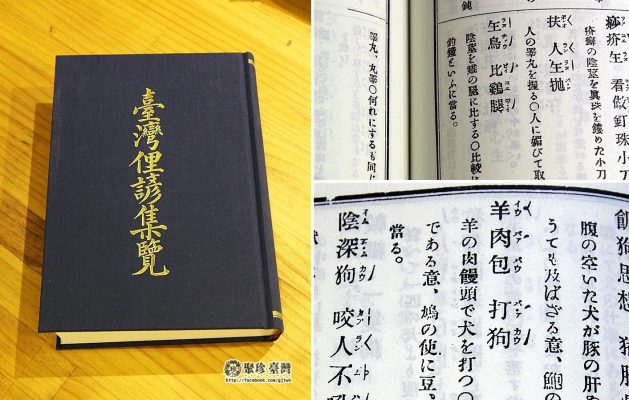 臺灣俚諺集覽
聚珍臺灣
http://facebook.com/gjtwn
看做釘珠小刀
の陰莖を眞珠を鏤めた小刀
扶人抛
人の睾丸を握る〇人に媚びて取
鳥比鷄腿
陰莖を鷄の腿に比する〇比較に
釣鐘といふに當る。
睾丸、丸睾〇何れにするも同じ
飢狗思想 猪肝
腹の空いた犬が豚の肝や
うても及ばざる意、鮑の
羊肉包 打狗
羊の肉饅頭で犬を打つ〇
である意、鳩の使に豆。
當る。
陰深狗 咬人不